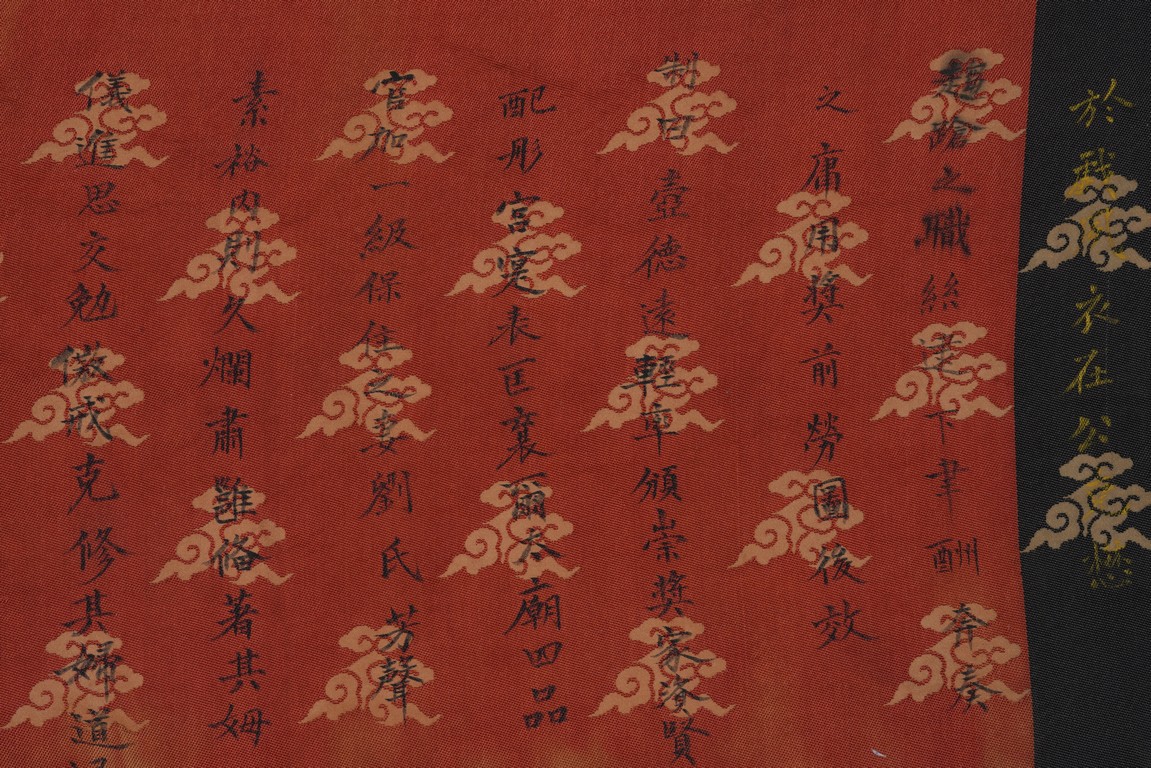 於 衣在公 懋
趨蹌之職絲 下聿酬奔奏
之庸用獎前勞圖後效
制曰壺德遠 輕車頒崇獎家資賢
配彤宮寔表匡襄爾太廟四品
官加一級保住之妻劉氏芳聲
素裕內則久嫻肅雝脩著其姆
儀進思交勉儆戒克修其婦道